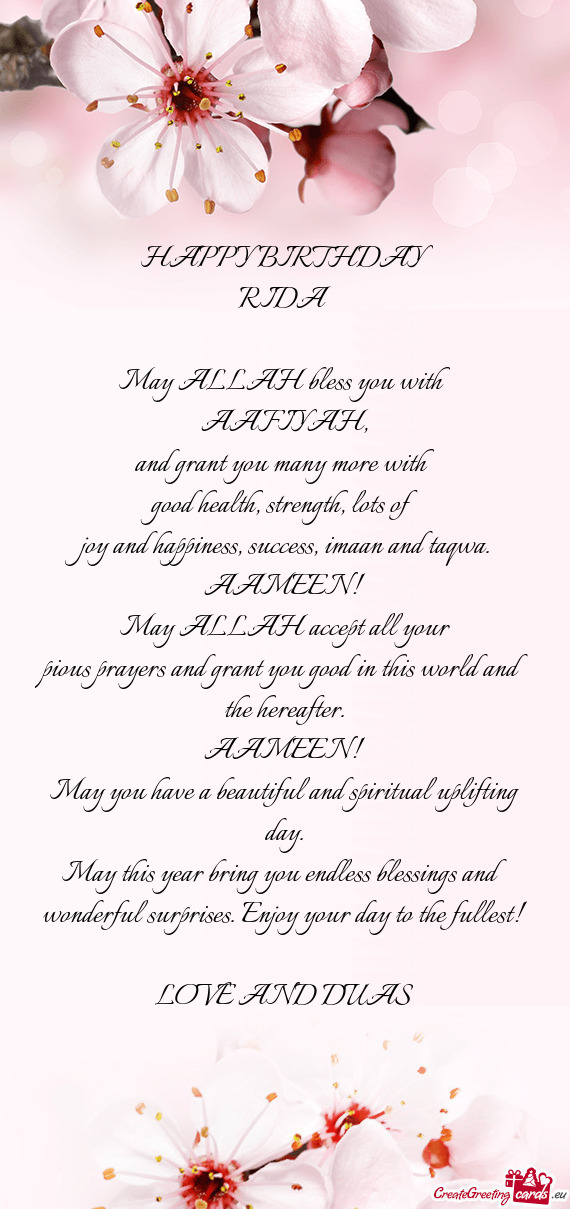 HAPPY BIRTHDAY
RIDA
May ALLAH bless you with
AAFIYAH,
and grant you many more with
good health, strength, lots of
joy and happiness, success, imaan and taqwa.
AAMEEN!
May ALLAH accept all your
pious prayers and grant you good in this world and
the hereafter.
AAMEEN!
May you have a beautiful and spiritual uplifting
day.
May this year bring you endless blessings and
wonderful surprises. Enjoy your day to the fullest!
LOVE AND DUAS
CreateGreetingcards.eu